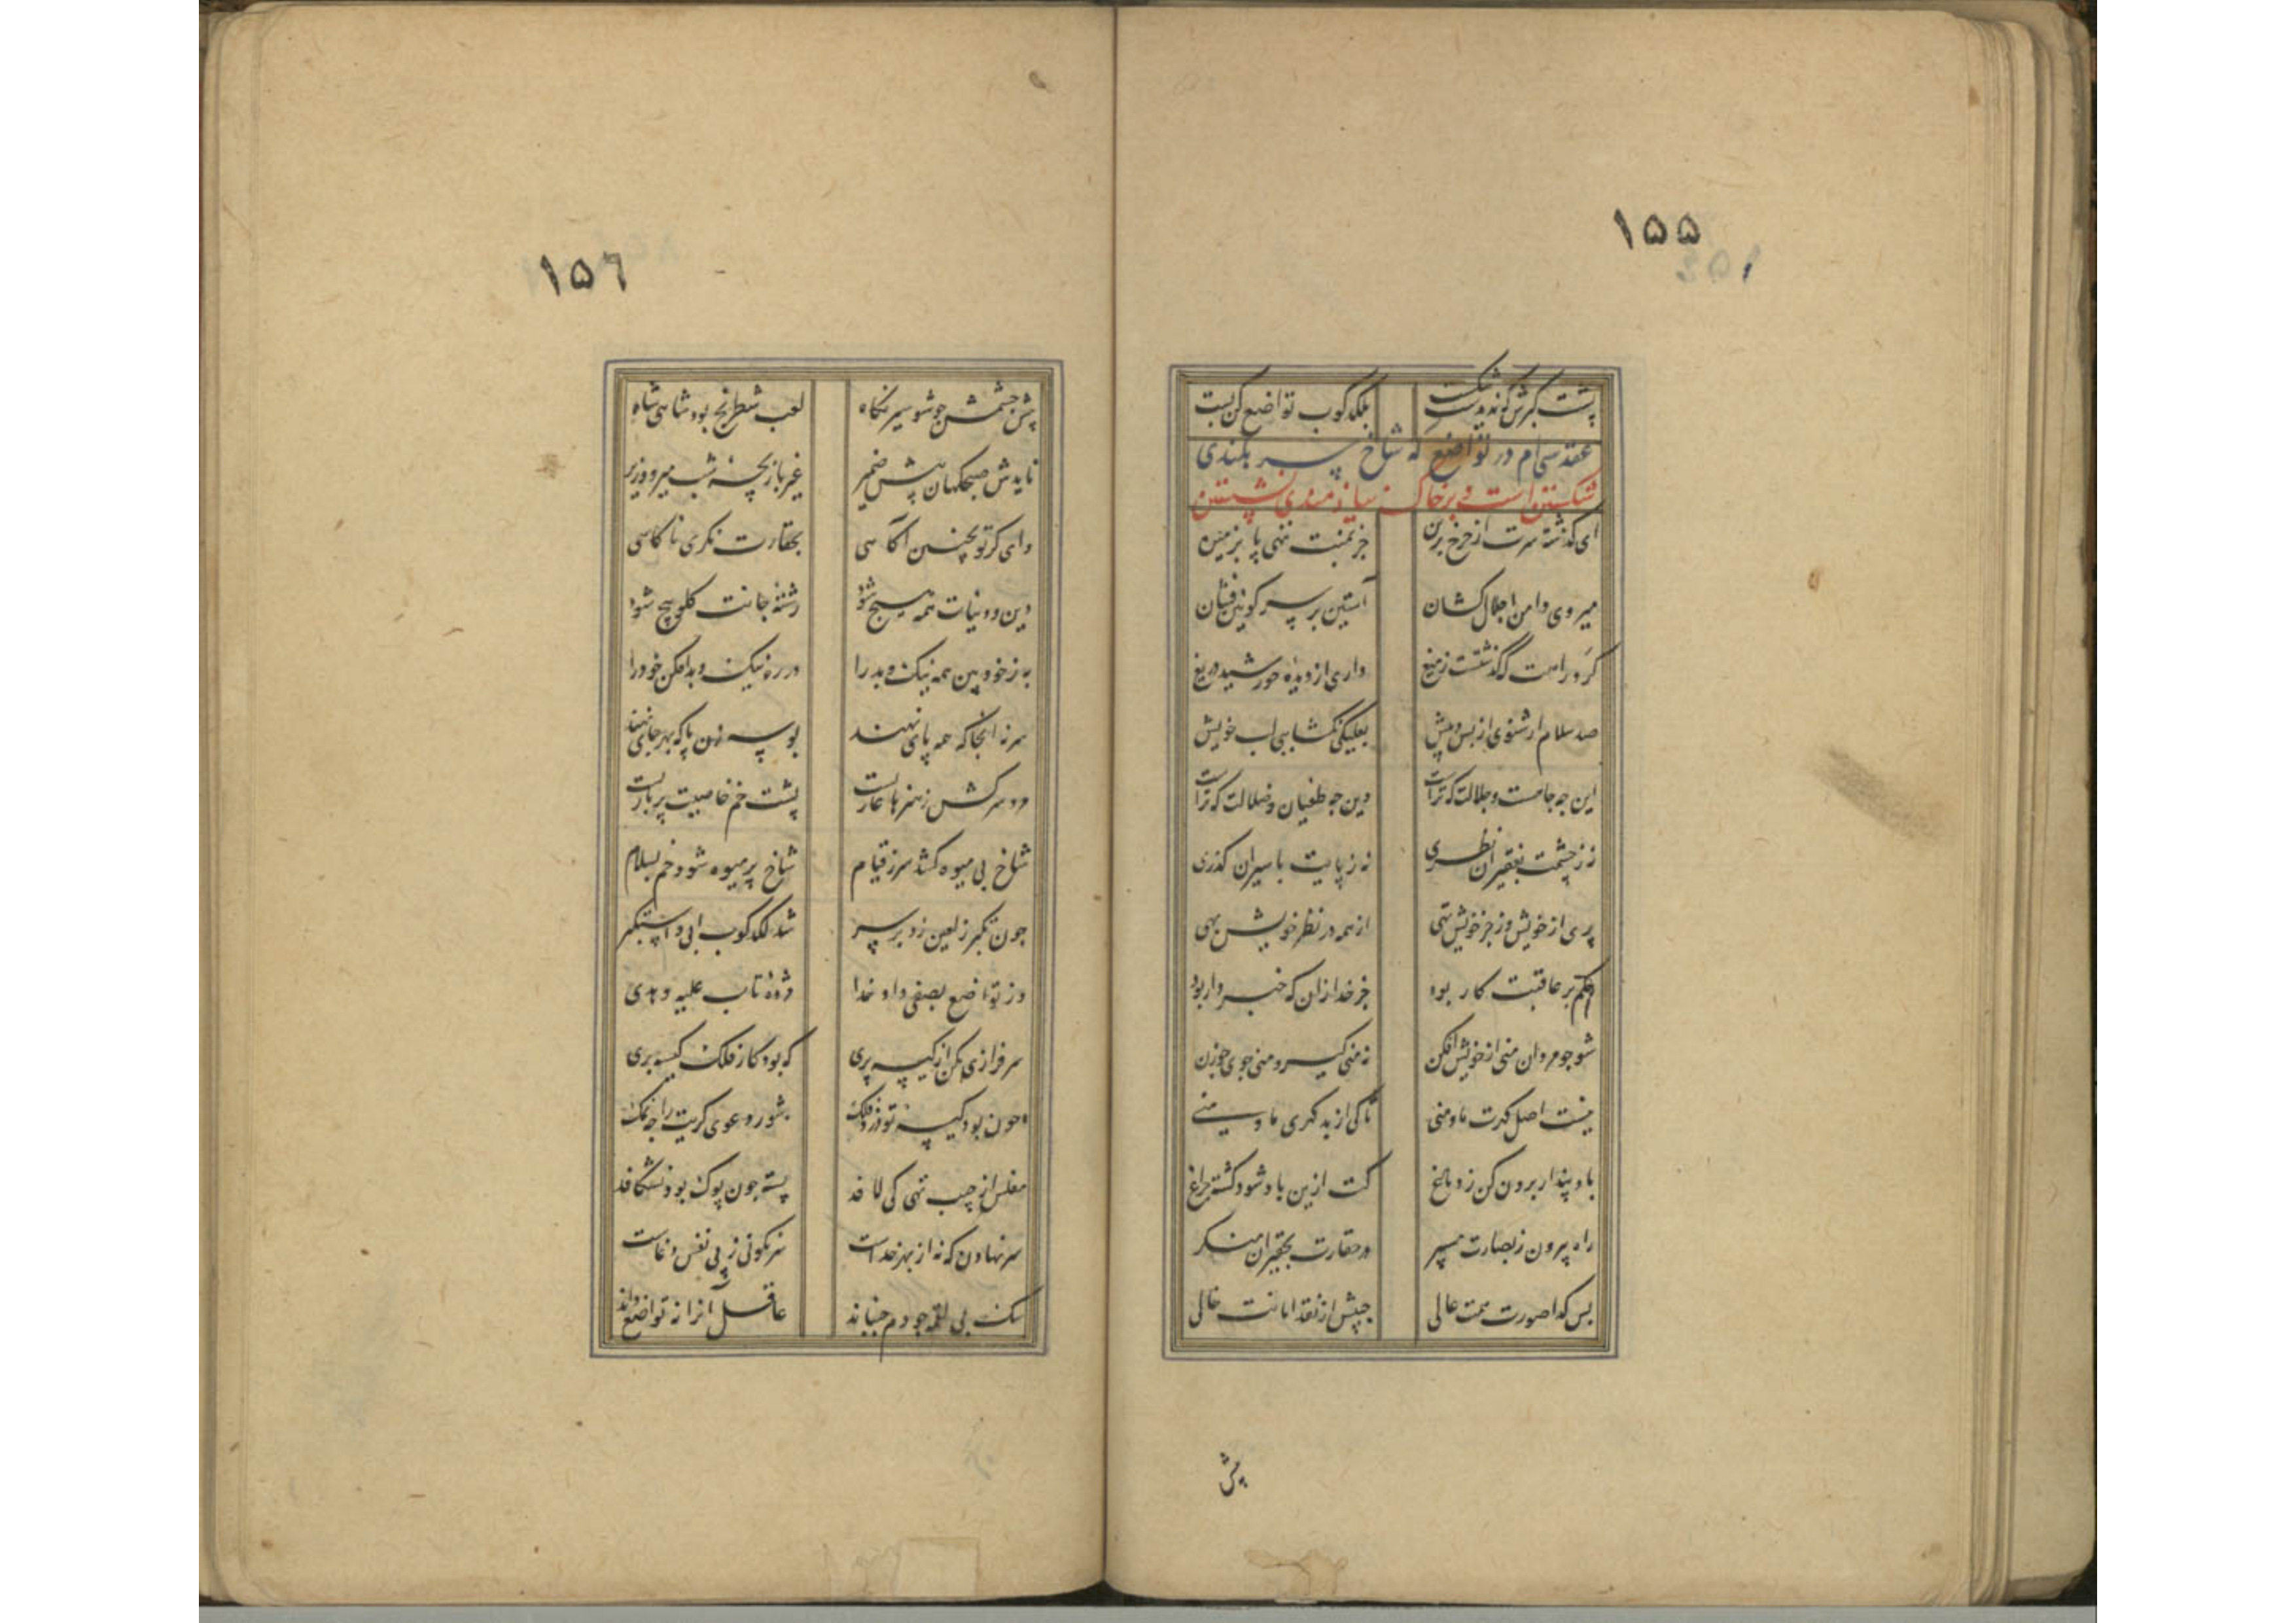 ۱۵۵
پشت کبرش که ندیدست شکست بلکدکوب تواضع کن پست
عقد سی‌ام در تواضع که شاخ سر بلندی
شکستن است و بر خاک نیازمندی نشستن
ای گذشته سرت از چرخ برین جز بمنت ننهی پا بزمین
میروی دامن اجلال کشان آستین بر سر کونین فشان
کرد راهت که گذشتست ز میغ داری از دیده خورشید دریغ
صد سلام ار شنوی از پس و پیش بعلیکی نکشایی لب خویش
این چه جاهست و جلالت که تراست وین چه طغیان و ضلالت که تراست
نه ز چشمت بفقیران نظری نه ز پایت باسیران کذری
پری از خویش و ز جز خویش تهی از همه در نظر خویش بهی
حکم بر عاقبت کار بود جز خدا زان که خبردار بود
شو چو مردان منی از خویش افکن نه منی کیر و منی جوی چو زن
نیست اصل کهرت ما و منی تا کی از بد کهری ما و منی
باد پندار برون کن ز دماغ کت ازین باد شود کشته چراغ
راه بیرون ز بصارت مسپر در حقارت بحقیران منکر
بس کدا صورت همت عالی جیبش از نقد امانت خالی
پیش
۱۵۶
پیش چشمش چو شود سیر نکاه لعب شطرنج بود شاهی شاه
نایدش صبحکهان پیش ضمیر غیر بازیچه شب میر و وزیر
وای کر تو بچنین آکاهی بحقارت نکری ناکاهی
دین و دنیات همه هیچ شود رشته جانت کلو پیچ شود
به ز خود بین همه نیک و بد را در ره نیک و بد افکن خود را
سر نه آنجا که همه پای نهند بوسه زن پا که بهر جای نهند
مرد سرکش ز هنرها عاریست پشت خم خاصیت پر باریست
شاخ بی میوه کشد سر ز قیام شاخ پر میوه شود خم بسلام
چون تکبر ز لعین زد بر سر شد لکدکوب ابی واستکبر
وز تواضع بصفی داد خدا مژده تاب علیه و هدی
سرفرازی مکن از کیسه پری که بود کار فلک کیسه بری
چون بود کیسه تو دزد فلک شور دعوی کریت را چه نمک
مفلس از جیب تهی کی لافد پسته چون پوک بود نشکافد
سر نهادن که نه از بهر خداست سرنکونی ز پی نفس و هواست
سک پی لقمه چو دم جنباند عاقل آنرا نه تواضع داند